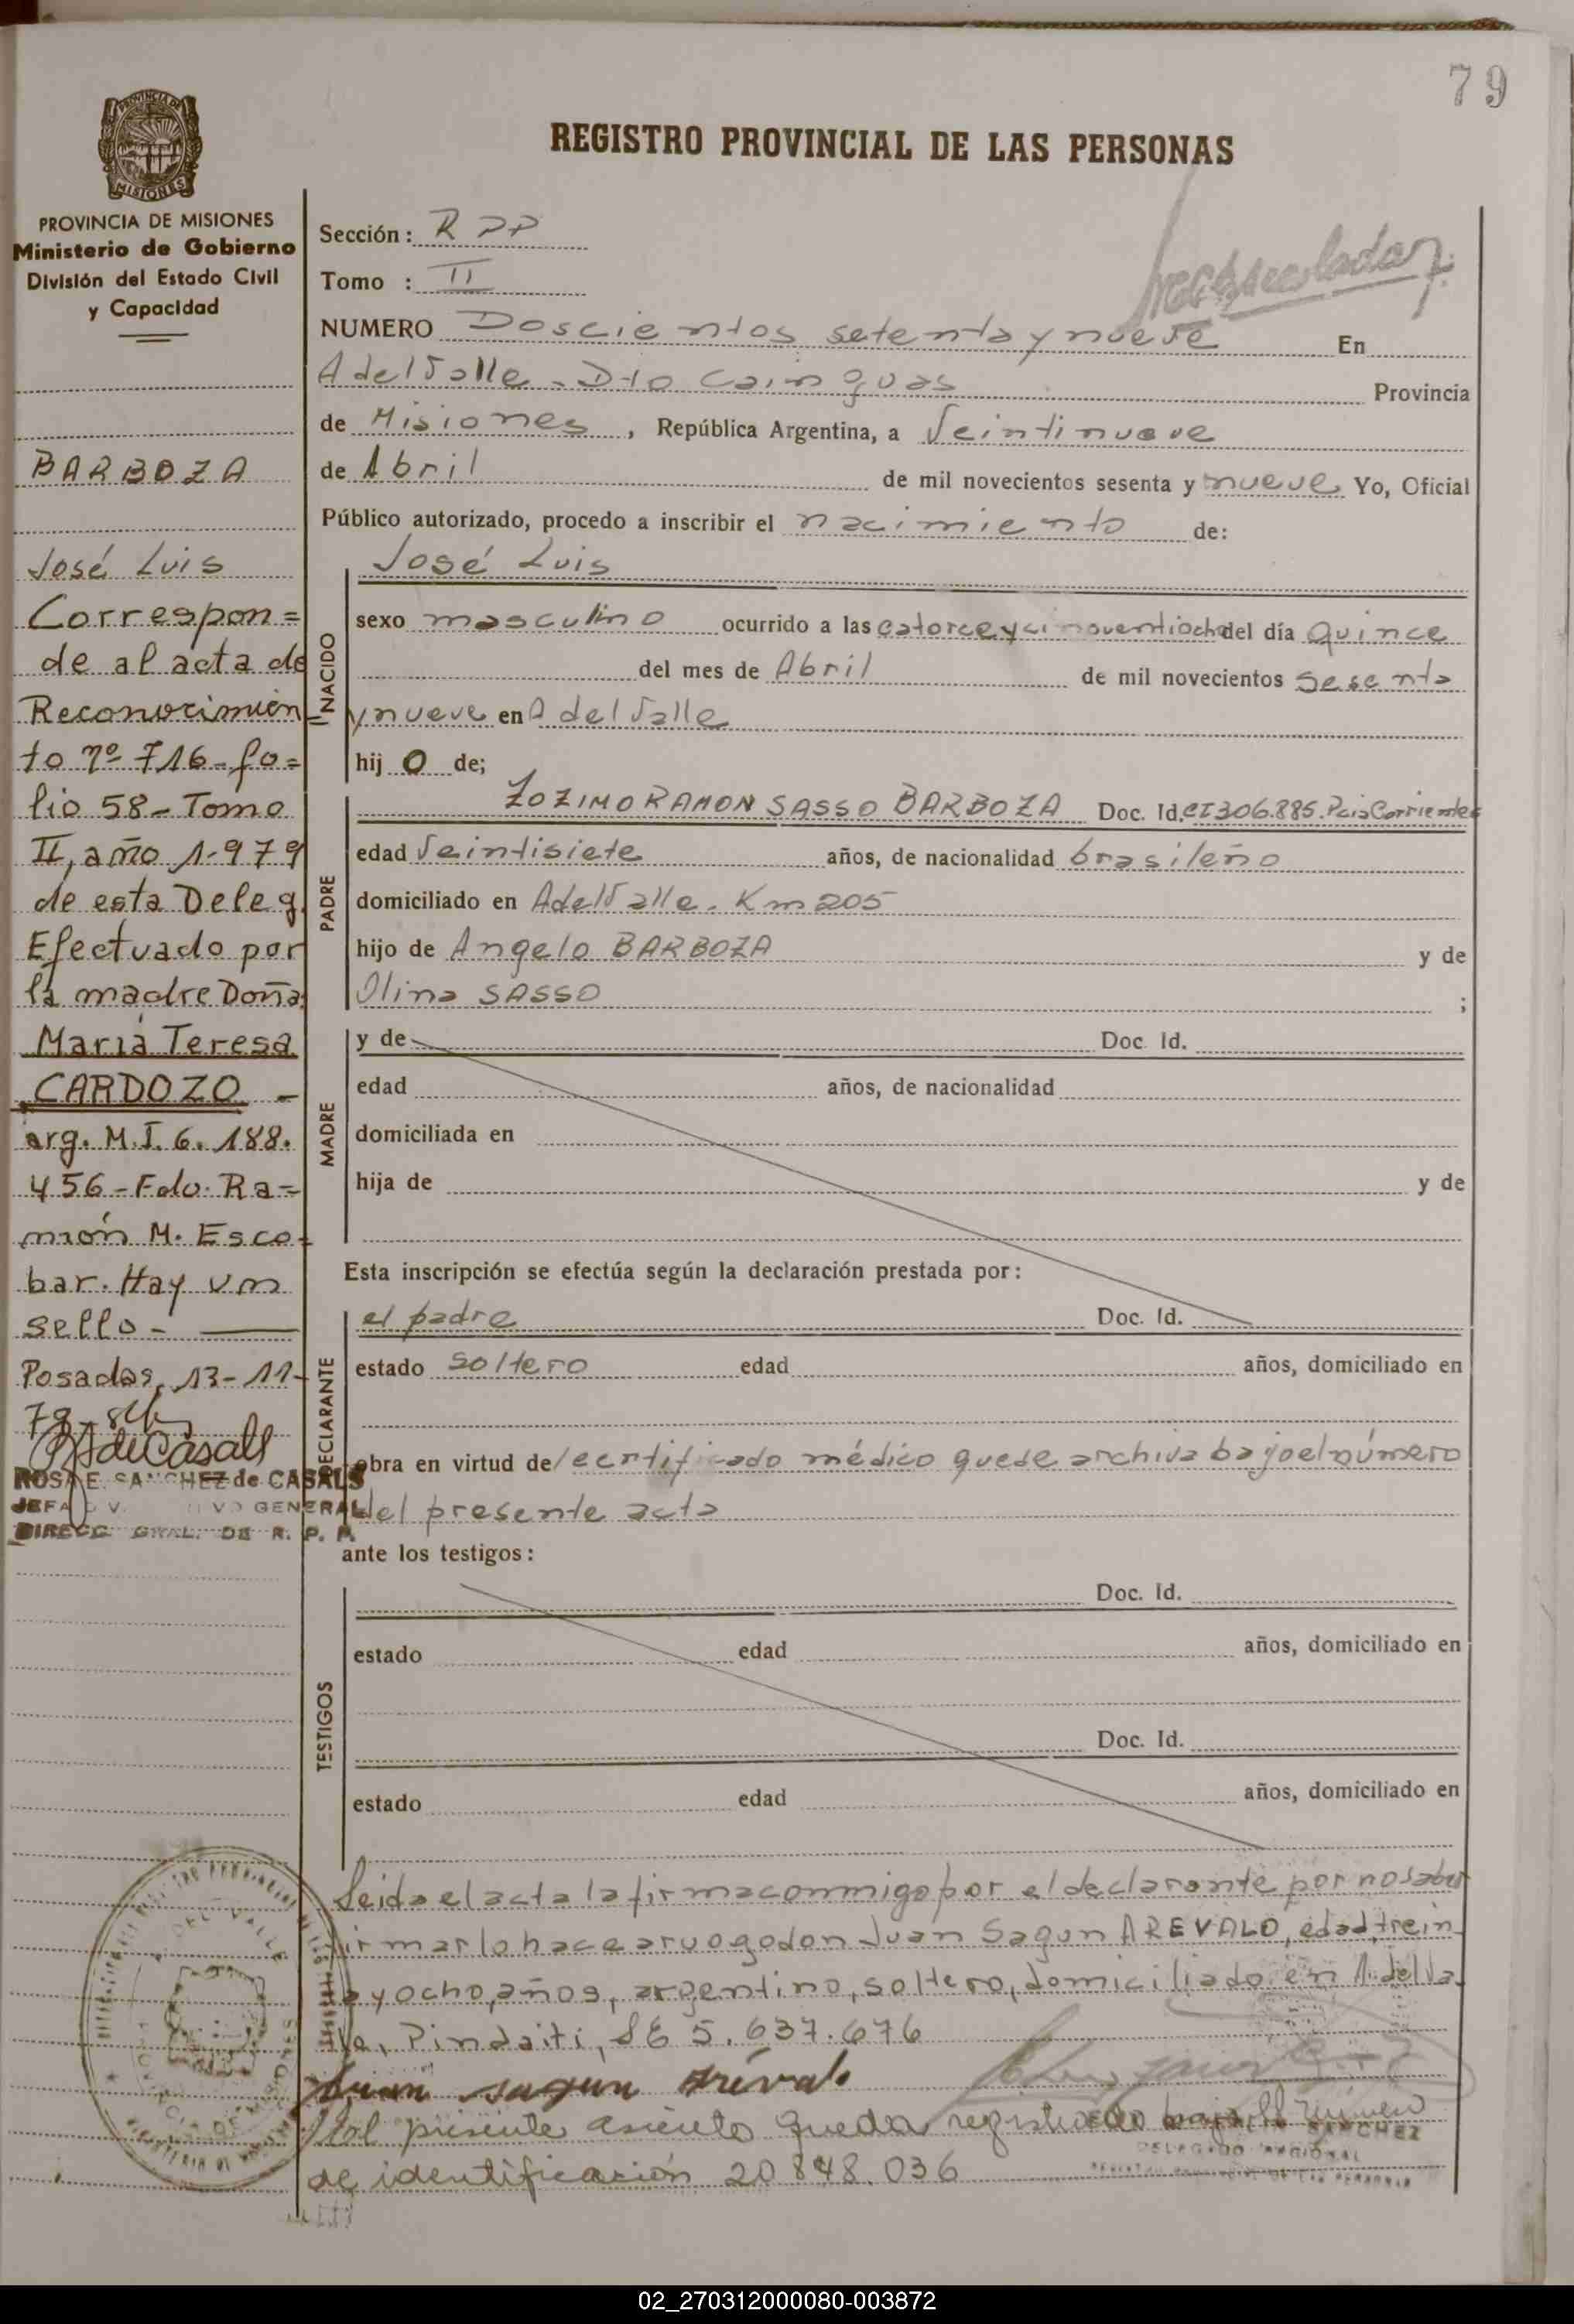 79
REGISTRO PROVINCIAL DE LAS PERSONAS
PROVINCIA DE MISIONES
Ministerio de Gobierno
División del Estado Civil
y Capacidad
BARBOZA
José Luis
Correspon=
de al acta de
Reconocimien
to nº 716-fo=
lio 58-Tomo
II, año 1.979
de esta Deleg.
Efectuado por
la madre Doña
María Teresa
CARDOZO -
arg. M.I. 6.188.
456-Fdo. Ra=
món M. Esco-
bar. Hay un
sello-
Posadas, 13-11-
79-
ROSA E. SANCHEZ de CASALS
JEFA GENERAL
DIRECC. GRAL. DE R. P. P.
Sección: RPP
Tomo : II
NUMERO Doscientos setenta y nueve En
A del Valle - Dto Cainguas Provincia
de Misiones, República Argentina, a Veintinueve
de Abril de mil novecientos sesenta y nueve Yo, Oficial
Público autorizado, procedo a inscribir el nacimiento de:
José Luis
NACIDO
sexo masculino ocurrido a las catorce y del día Quince
del mes de Abril de mil novecientos sesenta
y nueve en A del Valle
hij o de;
PADRE
ZOZIMO RAMON SASSO BARBOZA Doc. Id. CI 306.885. Pcia Corrientes
edad Veintisiete años, de nacionalidad brasileño
domiciliado en A del Valle. Km 205
hijo de Angelo BARBOZA y de
Olina SASSO ;
MADRE
y de Doc. Id.
edad años, de nacionalidad
domiciliada en
hija de y de
Esta inscripción se efectúa según la declaración prestada por:
DECLARANTE
el padre Doc. Id.
estado soltero edad años, domiciliado en
obra en virtud de certificado médico que se archiva bajo el número
del presente acta
ante los testigos:
TESTIGOS
Doc. Id.
estado edad años, domiciliado en
Doc. Id.
estado edad años, domiciliado en
Leida el acta la firma conmigo por el declarante por no saber
firmar lo hace a ruego don Juan Sagun AREVALO, edad, trein
ta y ocho, años, argentino, soltero, domiciliado en A. del Va
lle, Pindaiti, 5.637.676
Juan Sagun Arévalo
Al presente asiento queda registrado bajo el número
de identificación 20.848.036
SANCHEZ
DELEGADO REGIONAL
02_270312000080-003872